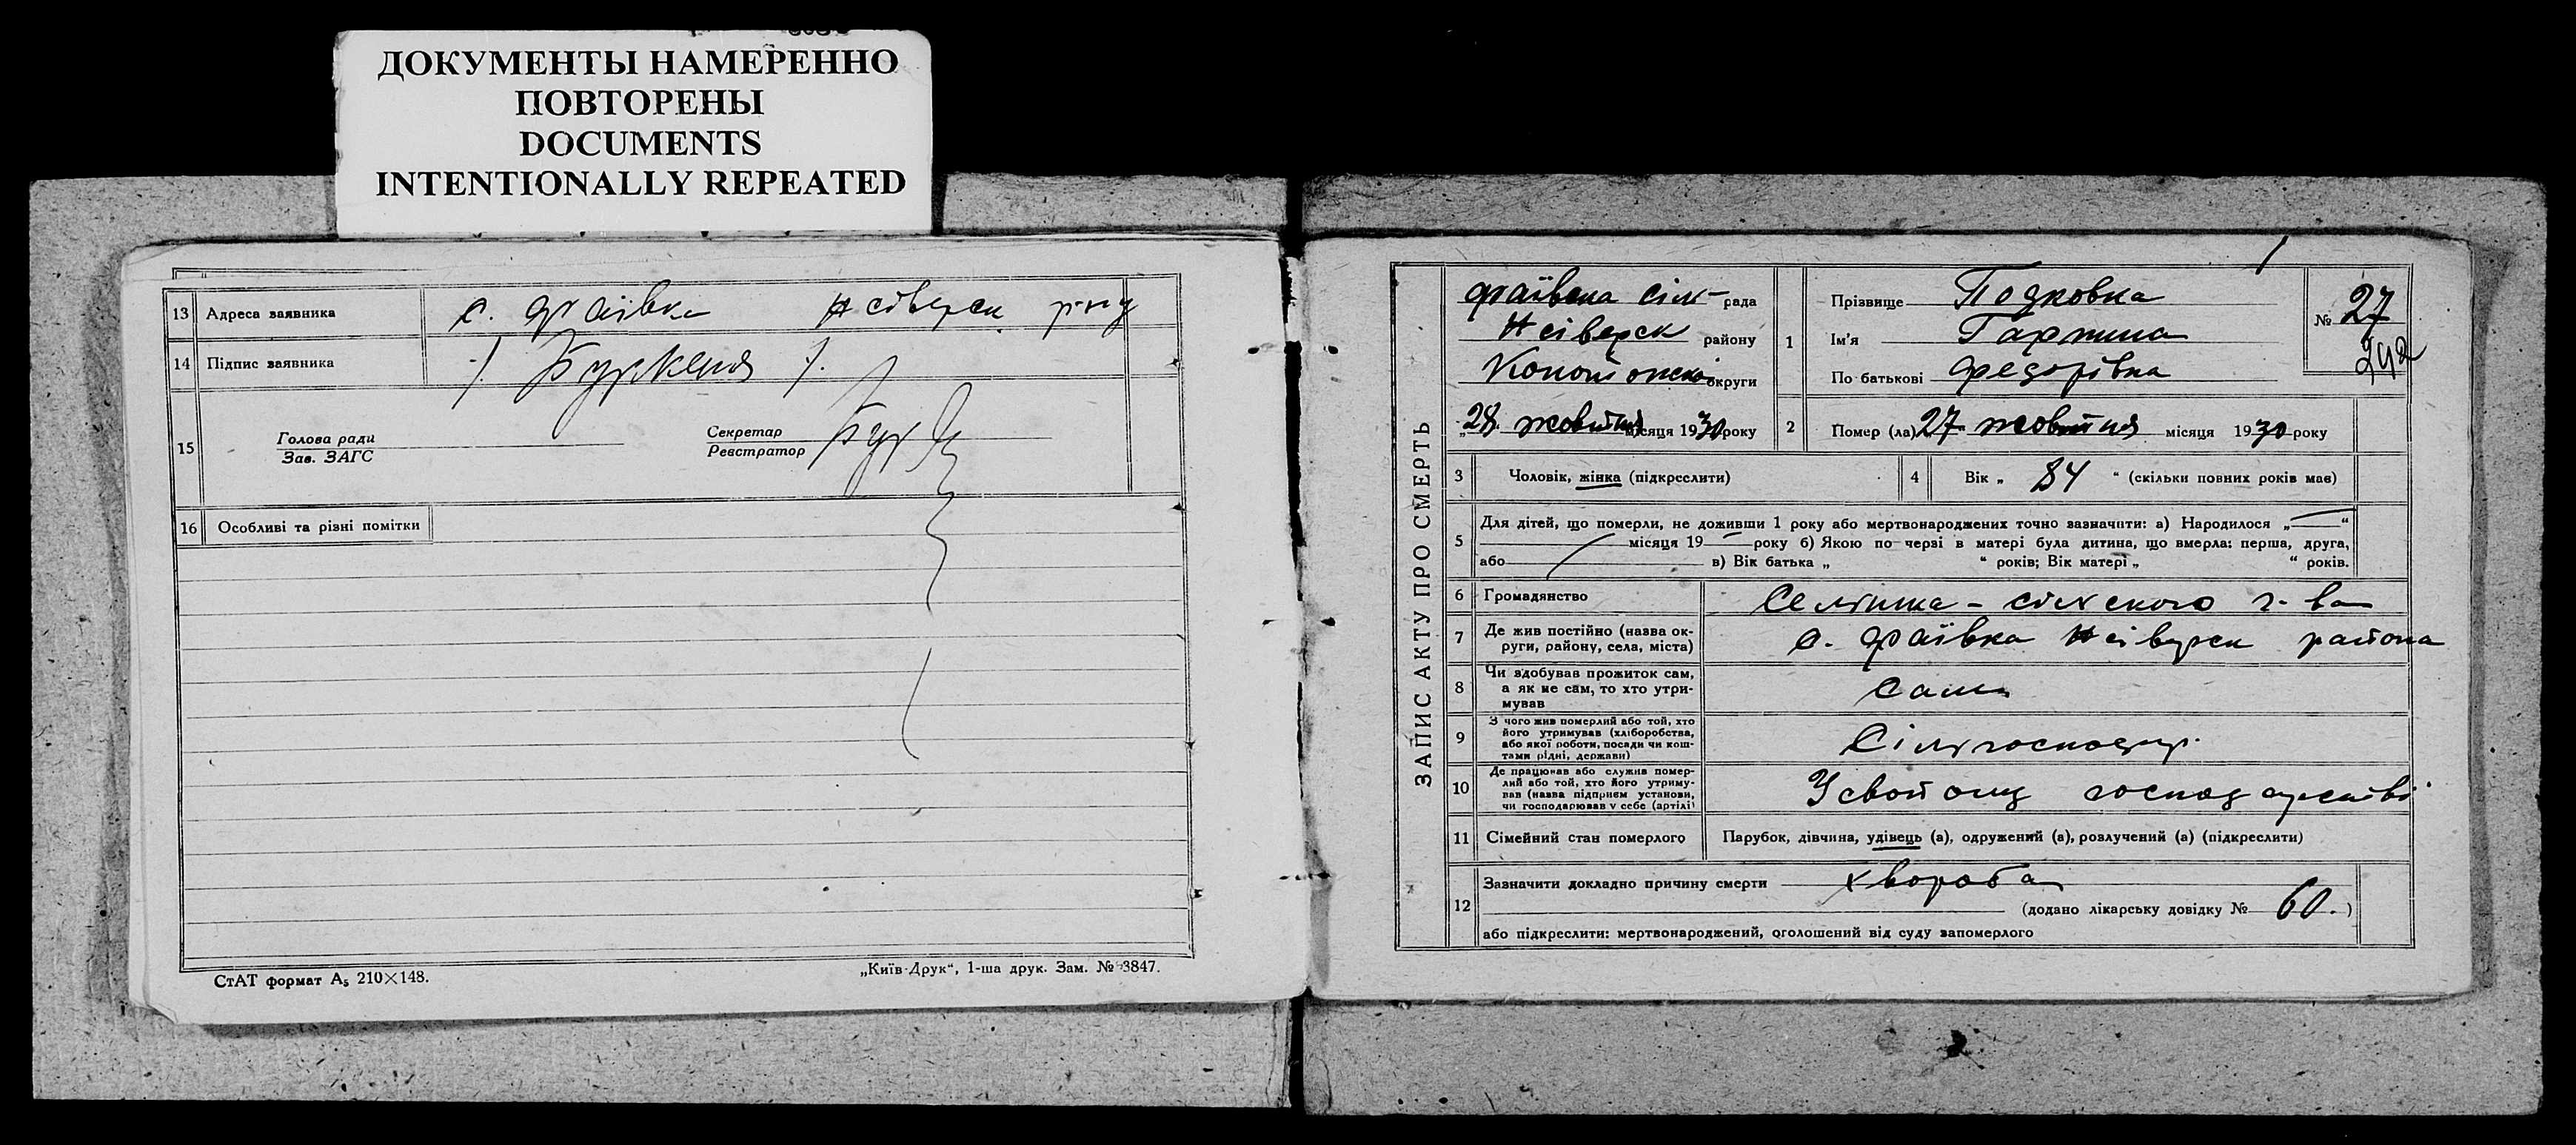 ДОКУМЕНТЫ НАМЕРЕННО
ПОВТОРЕНЫ
DOCUMENTS
INTENTIONALLY REPEATED
13 Адреса заявника с. Фаївка Н сіверськ р-ну
14 Підпис заявника
15 Голова ради
Зав. ЗАГС
Секретар
Реєстратор
16 Особливі та різні помітки
СтАТ формат А₅ 210×148.
„Київ-Друк“, 1-ша друк. Зам. № 3847.
ЗАПИС АКТУ ПРО СМЕРТЬ
Фаївська сіль- рада
Н сіверськ району
Конотопської округи
„28 жовтня місяця 1930 року
1 Прізвище Подковка
Ім'я Гарпина
По батькові Федорівна
№ 27
2 Помер (ла) „27 жовтня місяця 1930 року
3 Чоловік, жінка (підкреслити)
4 Вік „ 84 “ (скільки повних років мав)
5 Для дітей, що померли, не доживши 1 року або мертвонароджених точно зазначити: а) Народилося „ “
місяця 19 року б) Якою по черзі в матері була дитина, що вмерла: перша, друга,
або в) Вік батька „ “ років; Вік матері „ “ років.
6 Громадянство Селянка - сільского г-ва
7 Де жив постійно (назва ок-
руги, району, села, міста) с. Фаївка Н сіверськ района
8 Чи здобував прожиток сам,
а як не сам, то хто утри-
мував сама
9 З чого жив померлий або той, хто
його утримував (хліборобства,
або якої роботи, посади чи кош-
тами рідні, держави) Сільгосподар.
10 Де працював або служив помер-
лий або той, хто його утриму-
вав (назва підприєм установи,
чи господарював у себе (артілі) У свойому господарстві
11 Сімейний стан померлого Парубок, дівчина, удівець (а), одружений (а), розлучений (а) (підкреслити)
12 Зазначити докладно причину смерти хвороба
(додано лікарську довідку № 60. )
або підкреслити: мертвонароджений, оголошений від суду запомерлого